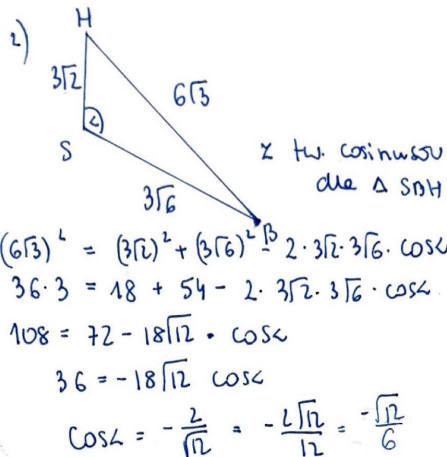 2)
H
3√2
6√3
S
α
3√6
B
z tw. cosinusów
dla Δ SBH
(6√3)² = (3√2)² + (3√6)² - 2·3√2·3√6·cosα
36·3 = 18 + 54 - 2·3√2·3√6·cosα
108 = 72 - 18√12 · cosα
36 = -18√12 cosα
cosα = -2/√12 = -2√12/12 = -√12/6